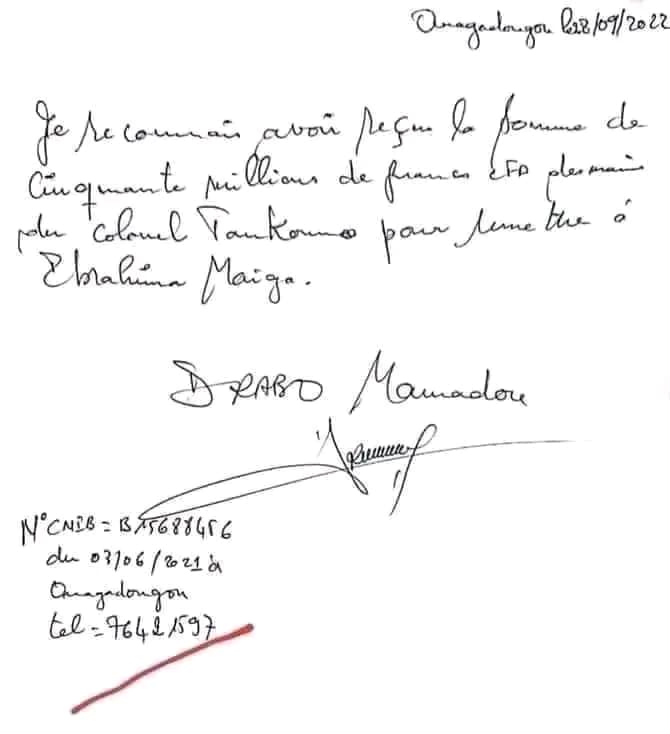 Ouagadougou le 28/09/2022
Je reconnais avoir reçu la somme de
Cinquante millions de francs CFA des mains
du Colonel Tankouano pour remettre à
Ibrahima Maiga.
DRABO Mamadou
N° CNIB = B15688456
du 03/06/2021 à
Ouagadougou
tel = 76421597